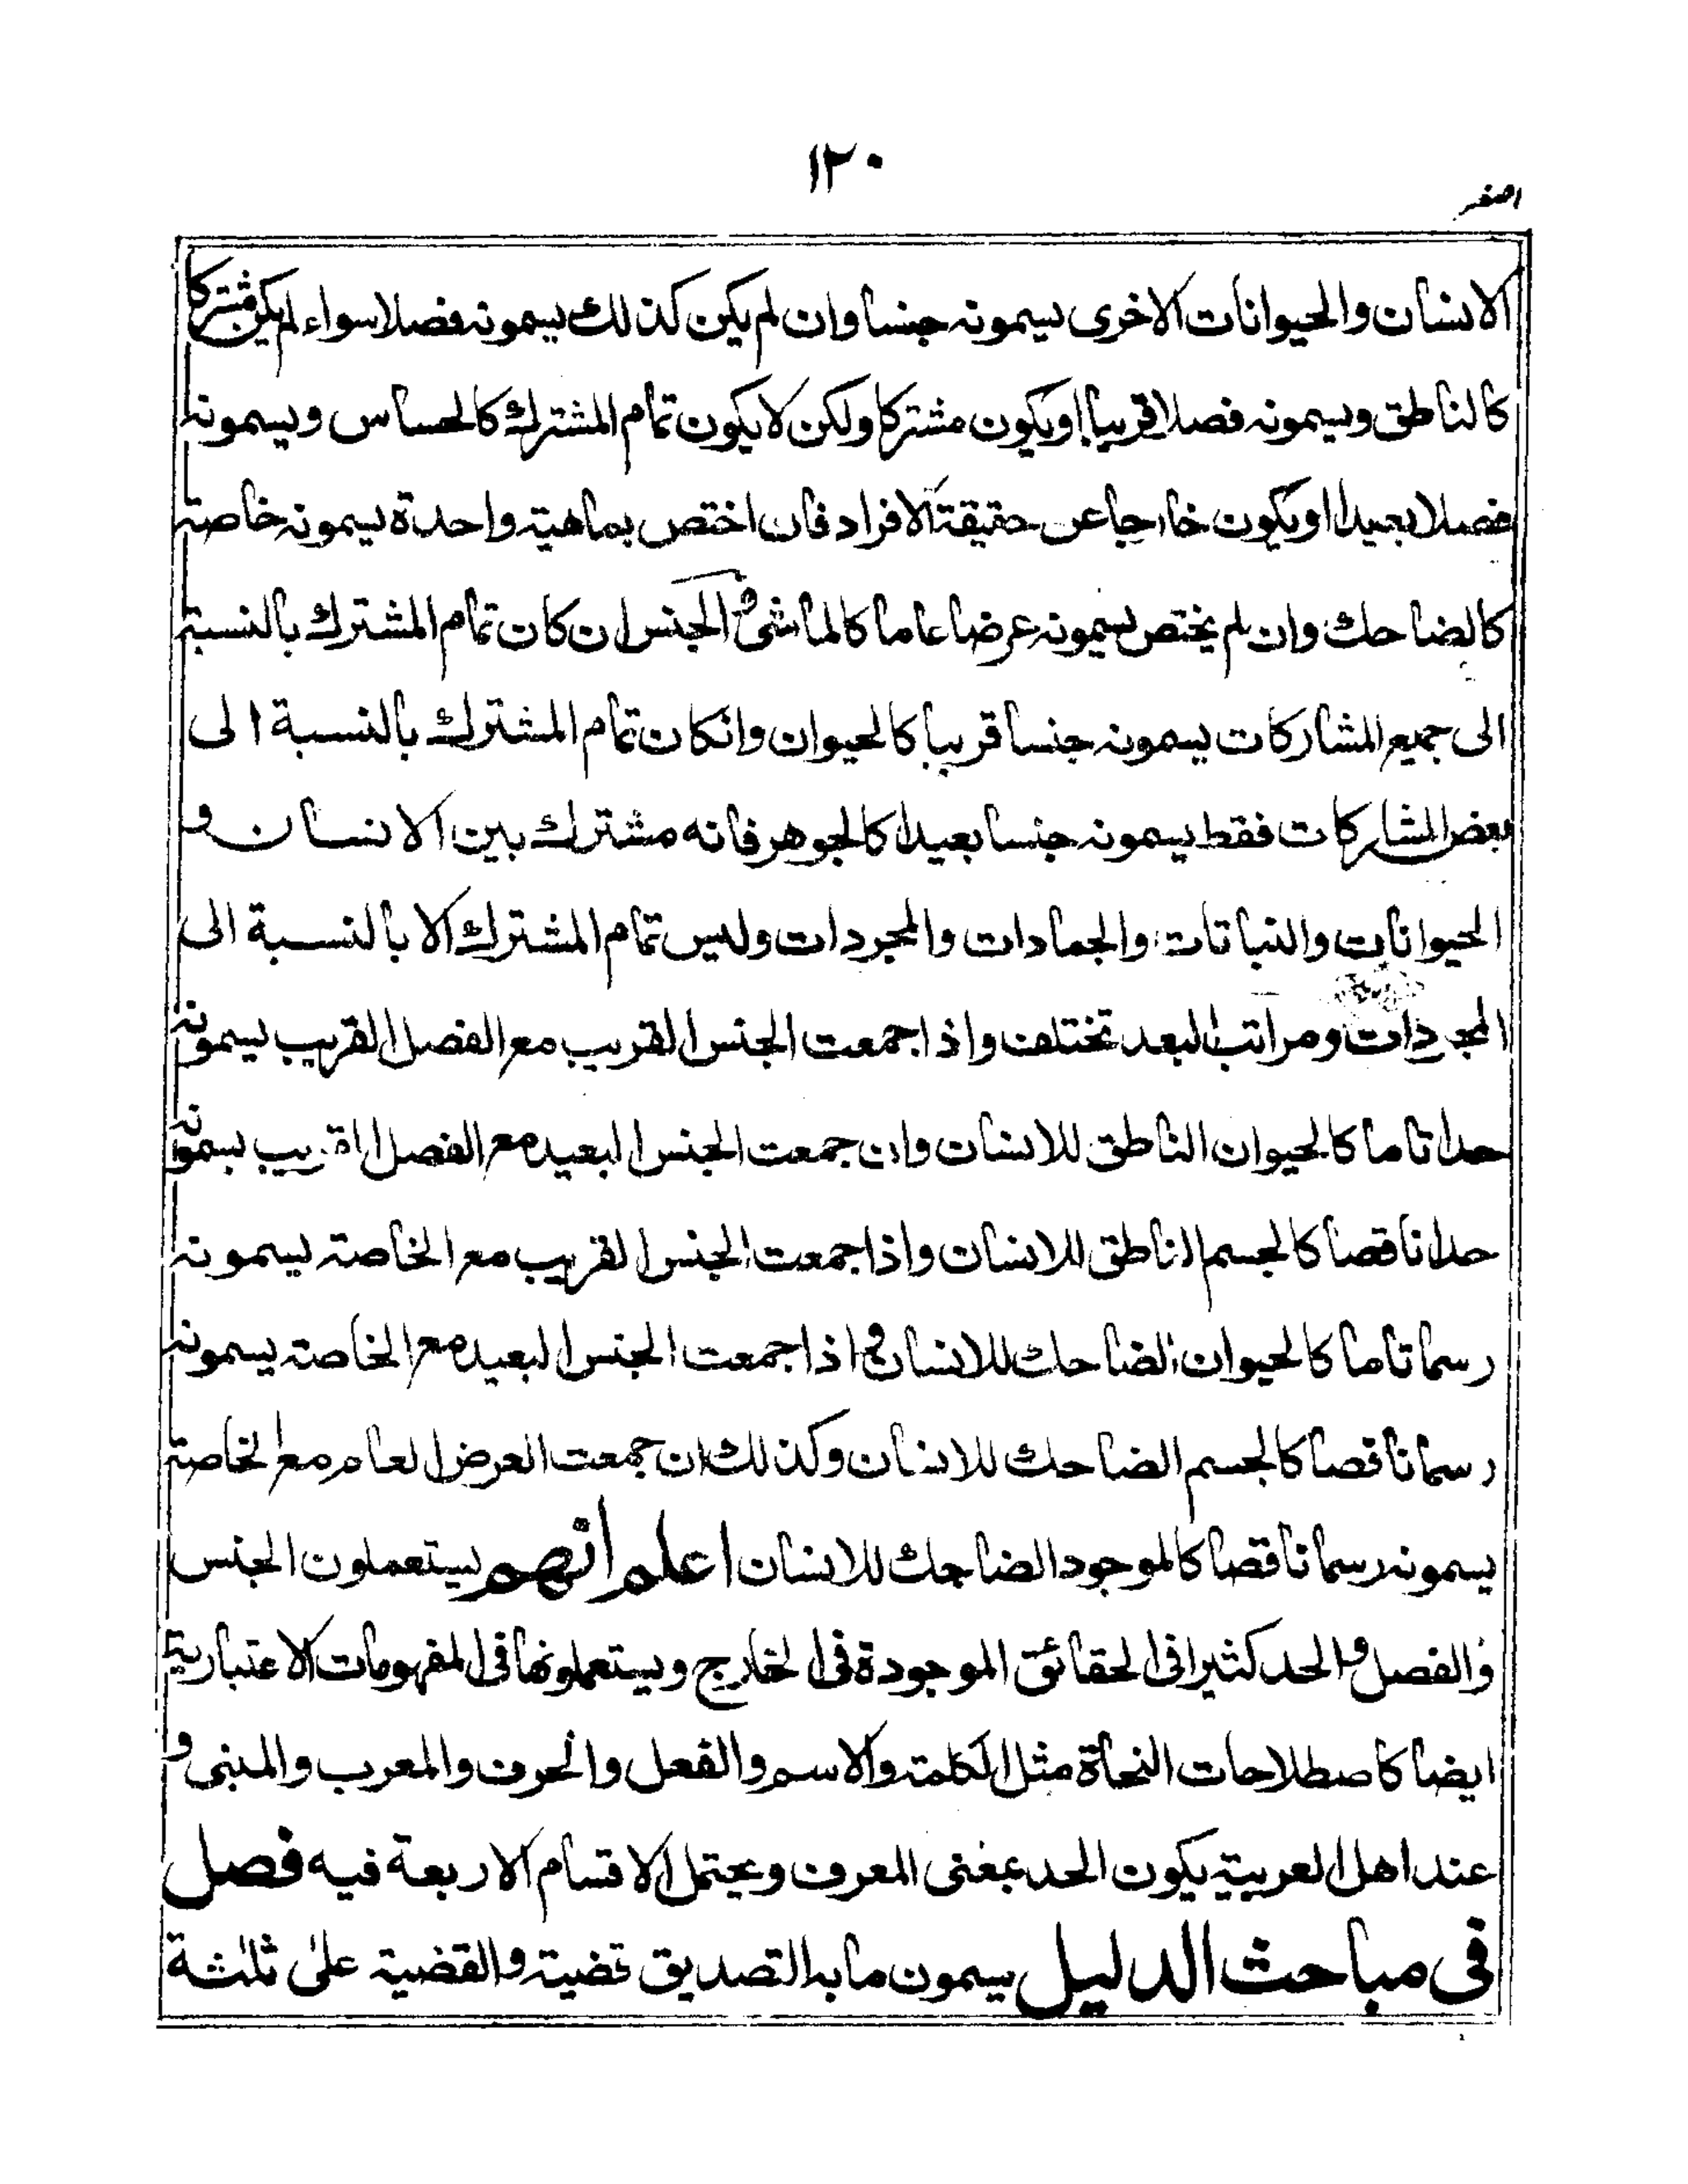 ١٢٠
اصغر
الانسان والحيوانات الاخرى يسمونه جنسا وان لم يكن كذلك يسمونه فصلا سواء لم يكن مشتركا
كالناطق ويسمونه فصلا قريبا او يكون مشتركا ولكن لا يكون تمام المشترك كالحساس ويسمونه
فصلا بعيدا او يكون خارجا عن حقيقة الافراد فان اختص بماهية واحدة يسمونه خاصة
كالضاحك وان لم يختص يسمونه عرضا عاما كالماشى و الجنس ان كان تمام المشترك بالنسبة
الى جميع المشاركات يسمونه جنسا قريبا كالحيوان وانكان تمام المشترك بالنسبة الى
بعض المشاركات فقط يسمونه جنسا بعيدا كالجوهر فانه مشترك بين الانسان و
الحيوانات والنباتات والجمادات والمجردات وليس تمام المشترك الا بالنسبة الى
المجردات ومراتب البعد تختلف واذا جمعت الجنس القريب مع الفصل القريب يسمونه
حدا تاما كالحيوان الناطق للانسان وان جمعت الجنس البعيد مع الفصل القريب يسمونه
حدا ناقصا كالجسم الناطق للانسان واذا جمعت الجنس القريب مع الخاصة يسمونه
رسما تاما كالحيوان الضاحك للانسان و اذا جمعت الجنس البعيد مع الخاصة يسمونه
رسما ناقصا كالجسم الضاحك للانسان وكذلك ان جمعت العرض العام مع الخاصة
يسمونه رسما ناقصا كالموجود الضاحك للانسان اعلم أنهم يستعملون الجنس
والفصل والحد كثيرا فى الحقائق الموجودة فى الخارج ويستعملونها فى المفهومات الاعتبارية
ايضا كاصطلاحات النحاة مثل الكلمة والاسم والفعل والحرف والمعرب والمبنى و
عند اهل العربية يكون الحد بمعنى المعرف ويحتمل الاقسام الاربعة فيه فصل
فى مباحث الدليل يسمون ما به التصديق قضية والقضية على ثلثة